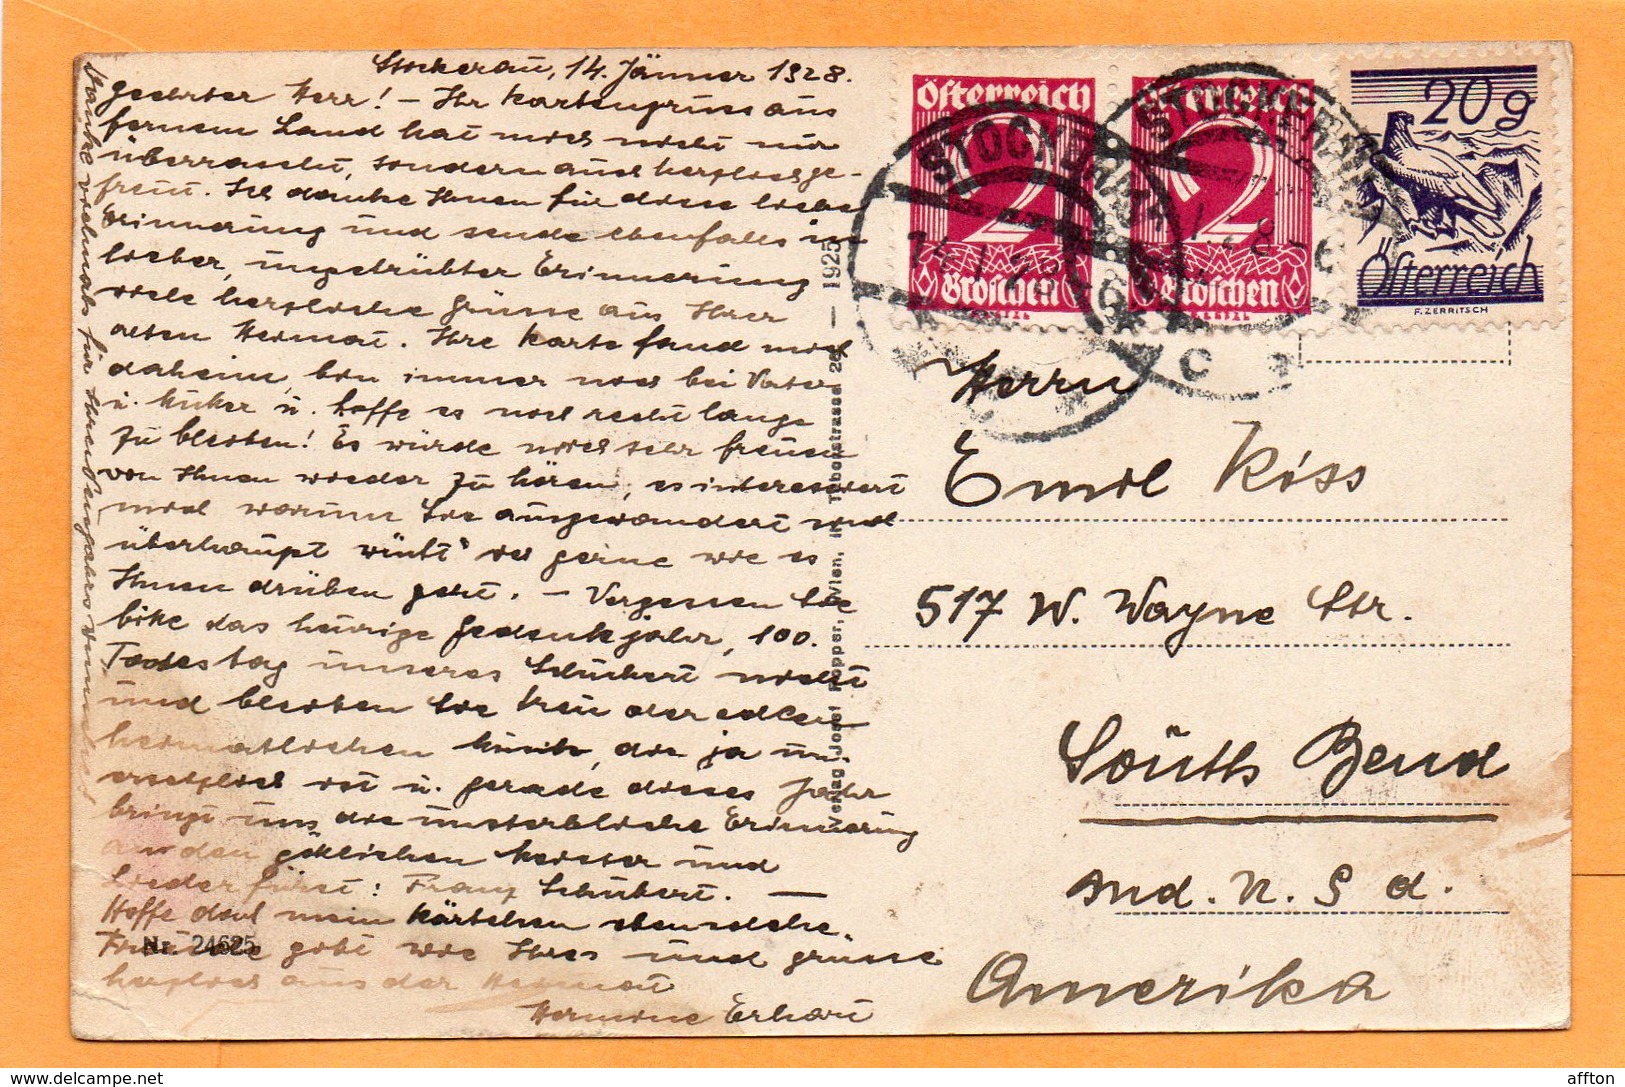 Stockerau, 14. Jänner 1928.
Geehrter Herr! – Ihr Kartengruss aus
fernem Land hat mich nicht nur
überrascht, sondern auch herzlich ge-
freut. Ich danke Ihnen für diese liebe
Erinnerung und sende ebenfalls in
lieber, ungetrübter Erinnerung
viele herzliche Grüsse aus Ihrer
alten Heimat. Ihre Karte fand mich
daheim, bin immer noch bei Vater
u. Mutter u. hoffe es noch recht lange
zu bleiben! Es würde mich sehr freuen
von Ihnen wieder zu hören, es interessiert
mich warum Sie ausgewandert und
überhaupt wüßt' ich gerne wie es
Ihnen drüben geht. – Vergessen Sie
bitte das heurige Gedenkjahr, 100.
Todestag unseres Schubert nicht
und bleiben Sie treu der edlen
heimatlichen Musik, die ja un-
ersetzlich ist u. gerade dieses Jahr
bringt uns die unsterbliche Erinnerung
an den göttlichen Meister und
Liederfürst: Franz Schubert. —
Hoffe doch mein Kärtchen ebensolche
Freude gibt wie Ihres und grüsse
herzlich aus der Heimat
Hermine Erhart
Danke vielmals für Ihren Neujahrswunsch!
Nr. 24625
Verlag Josef Popper, Wien, Taborstrasse — 1925
Österreich
2
Groschen
Österreich
2
Groschen
20g
Österreich
F. ZERRITSCH
STOCKERAU
STOCKERAU
Herrn
Emil Kiss
517 W. Wayne Str.
South Bend
Ind. U. S. A.
Amerika
affton